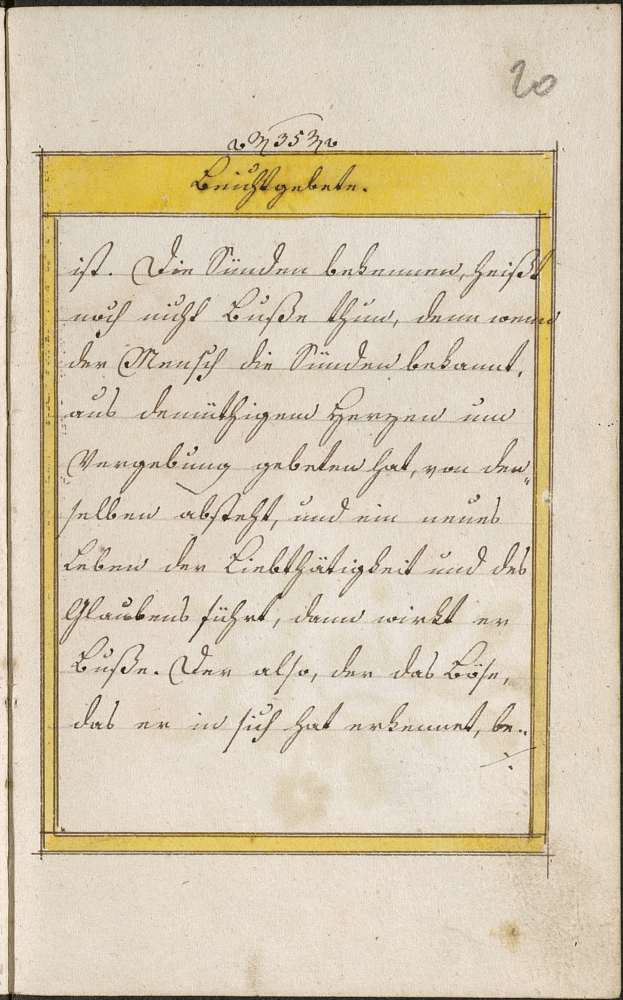 20
35
Beichtgebete.
ist. Die Sünden bekennen, heißt
noch nicht Buße thun, denn wenn
der Mensch die Sünden bekannt,
aus demüthigem Herzen um
Vergebung gebeten hat, von den„
selben absteht, und ein neues
Leben der Liebthätigkeit und des
Glaubens führt, dann wirkt er
Buße. Der also, der das Böse,
das er in sich hat erkennet, be„